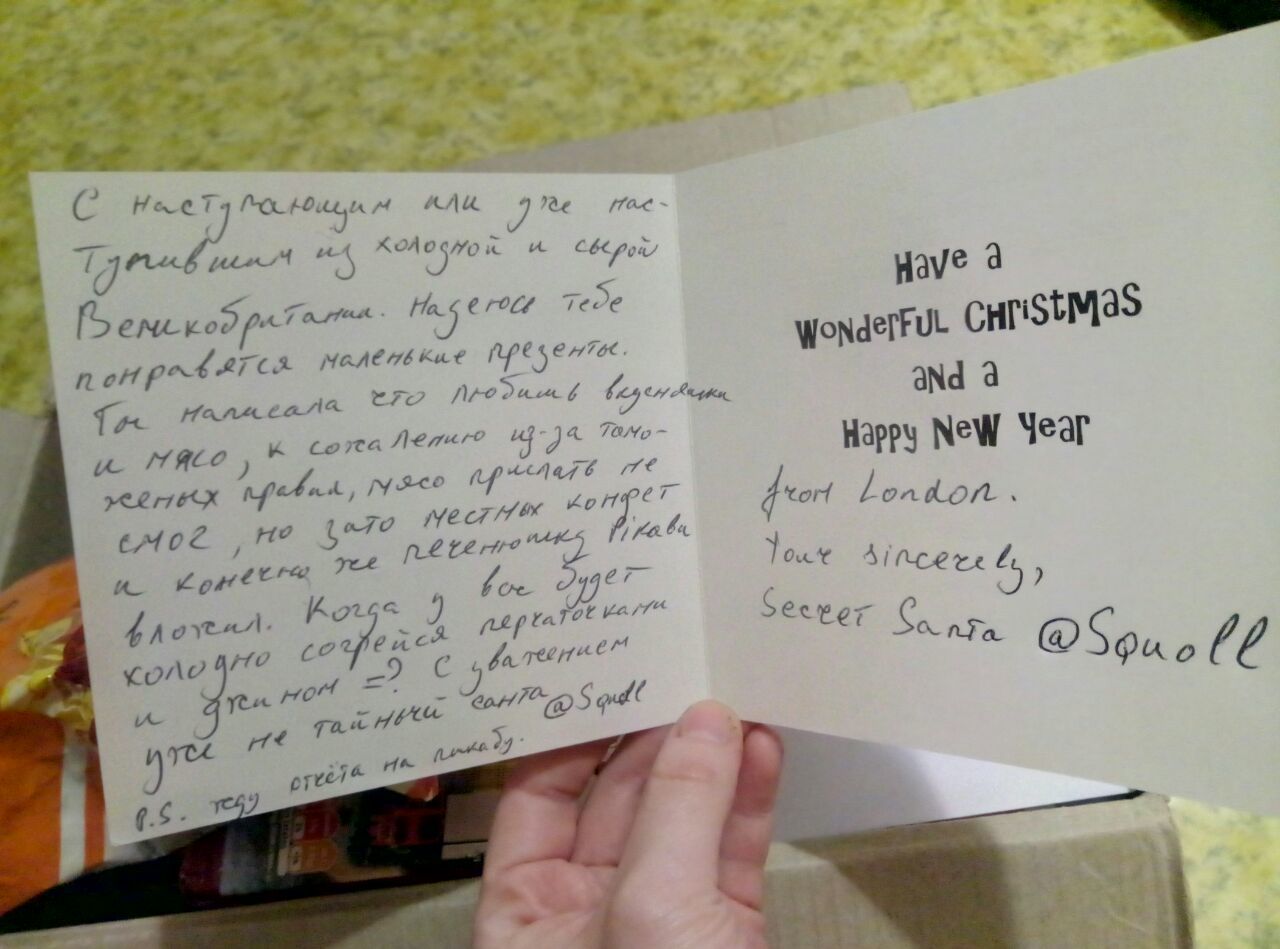 С наступающим или уже нас-
тупившим из холодной и сырой
Великобритании. Надеюсь тебе
понравятся маленькие презенты.
Ты написала что любишь вкусняшки
и мясо, к сожалению из-за тамо-
женых правил, мясо прислать не
смог, но зато местных конфет
и конечно же печенюшку Pikabu
вложил. Когда у вас будет
холодно согрейся перчаточками
и джином =? С уважением
уже не тайный санта @Squoll
P.S. жду отчёта на пикабу.
Have a
Wonderful Christmas
and a
Happy New Year
from London.
Your sincerely,
Secret Santa @Squoll